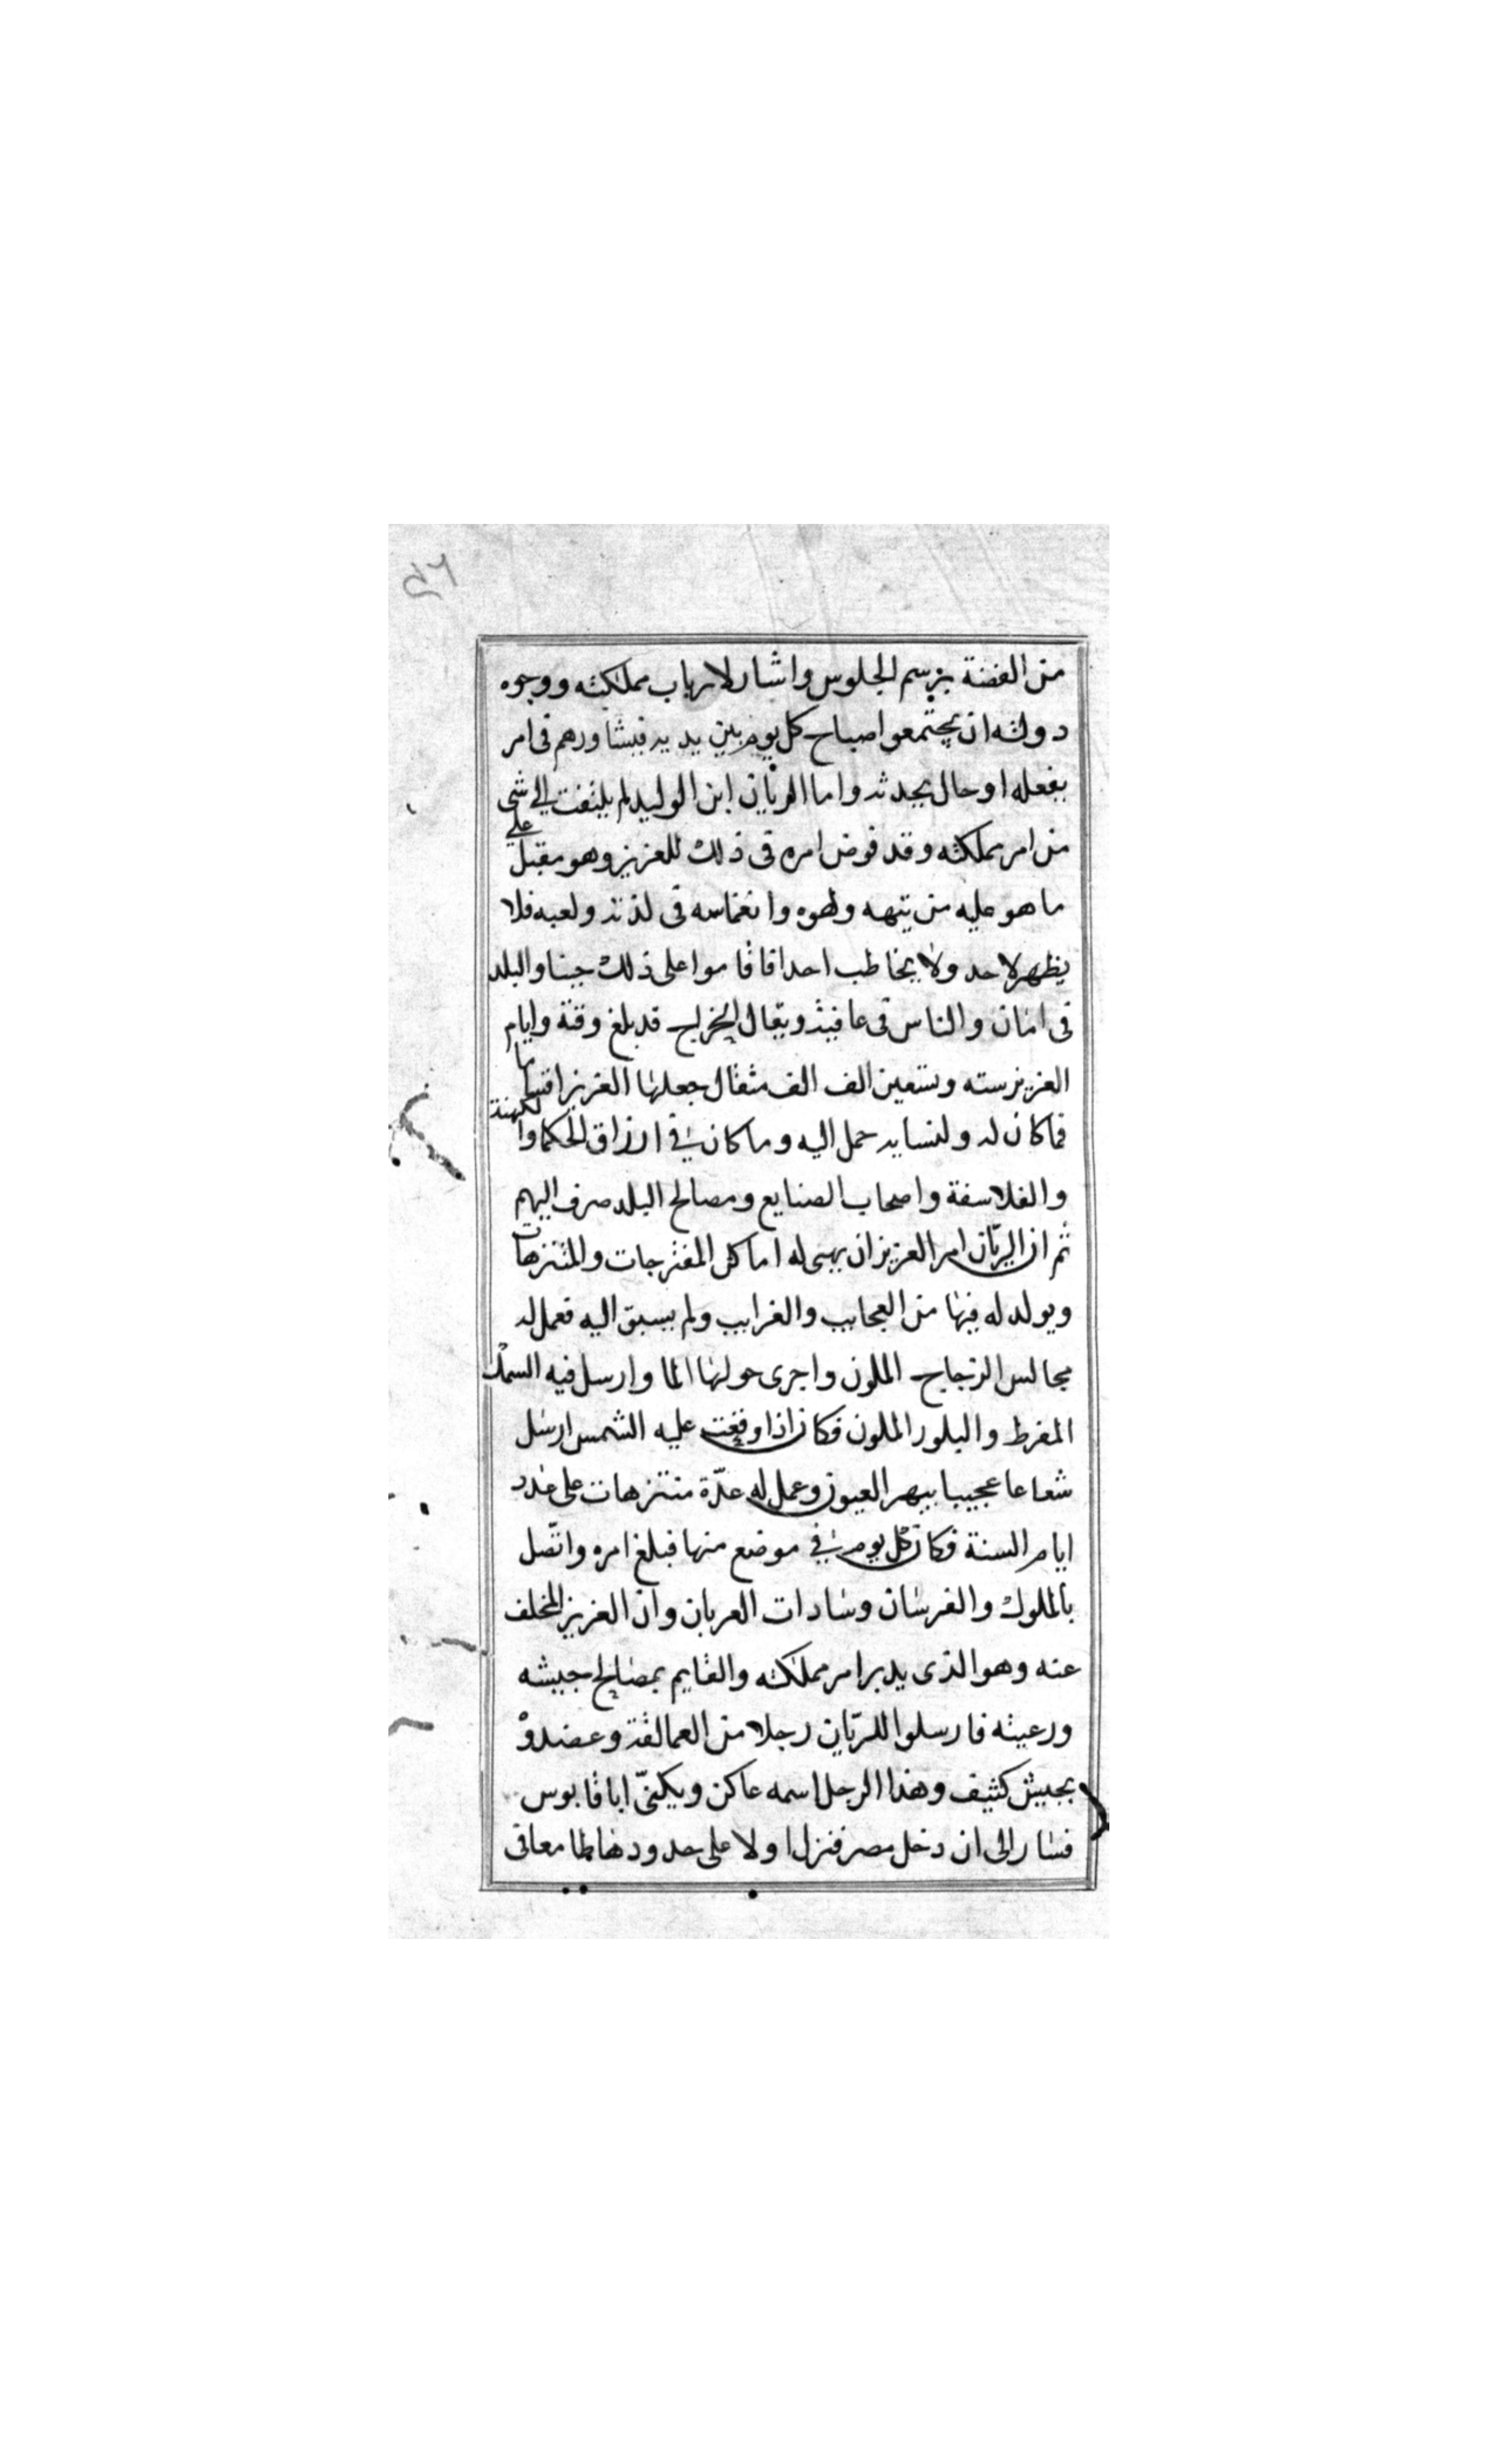 من الفضة برسم الجلوس واشار لارباب مملكته ووجوه
دولته ان يجتمعوا صباح كل يوم بين يديه فيشاورهم فى امر
يفعله او حال يحدثه واما الريان ابن الوليد لم يلتفت الى شى
من امر مملكته وقد فوض امره فى ذلك للعزيز وهو مقبل على
ما هو عليه من تيهه ولهوه وانغماسه فى لذته ولعبه فلا
يظهر لاحد ولا يخاطب احدا فاقاموا على ذلك حينا والبلد
فى امان والناس فى عافية ويقال الخراج قد بلغ وقته وايام
العزيز سته وتسعين الف الف مثقال جعلها العزيز اقساما
فما كان له ولنسايه حمل اليه وما كان فى ارزاق الحكما والكهنة
والفلاسفة واصحاب الصنايع ومصالح البلد صرف اليهم
ثم ان الريّان امر العزيز ان يهيى له اماكن المفترجات والمتنزهات
ويولد له فيها من العجايب والغرايب ولم يسبق اليه فعمل له
مجالس الزجاج الملون واجرى حولها الما وارسل فيه السمك
المقرط والبلور الملون فكان اذا وقعت عليه الشمس ارسل
شعاعا عجيبا يبهر العيون وعمل له عدّة متنزهات على عدد
ايام السنة فكان كل يوم فى موضع منها فبلغ امره واتّصل
بالملوك والفرسان وسادات العربان وان العزيز المخلف
عنه وهو الذى يدبر امر مملكته والقايم بمصالح جيشه
ورعيته فارسلوا للريّان رجلا من العمالقة وعضدوْ
بجيش كثيف وهذا الرجل اسمه عاكن ويكنىّ ابا قابوس
فسار الى ان دخل مصر فنزل اولا على حدودها لما معافى